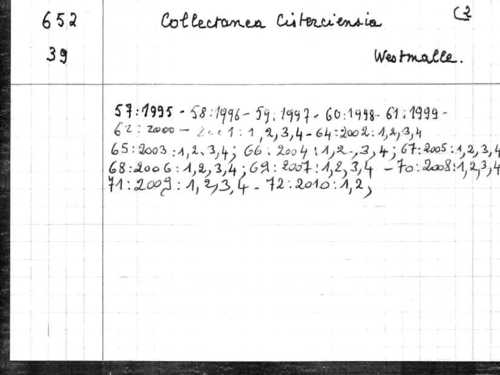 652 Collectanea Cisterciensia C3
39 Westmalle.
57:1995 - 58:1996 - 59:1997 - 60:1998 - 61:1999 -
62:2000 - 1:1,2,3,4 - 64:2002:1,2,3,4
65:2003:1,2,3,4; 66:2004:1,2,3,4; 67:2005:1,2,3,4
68:2006:1,2,3,4; 69:2007:1,2,3,4 - 70:2008:1,2,3,4
71:2009:1,2,3,4 - 72:2010:1,2,